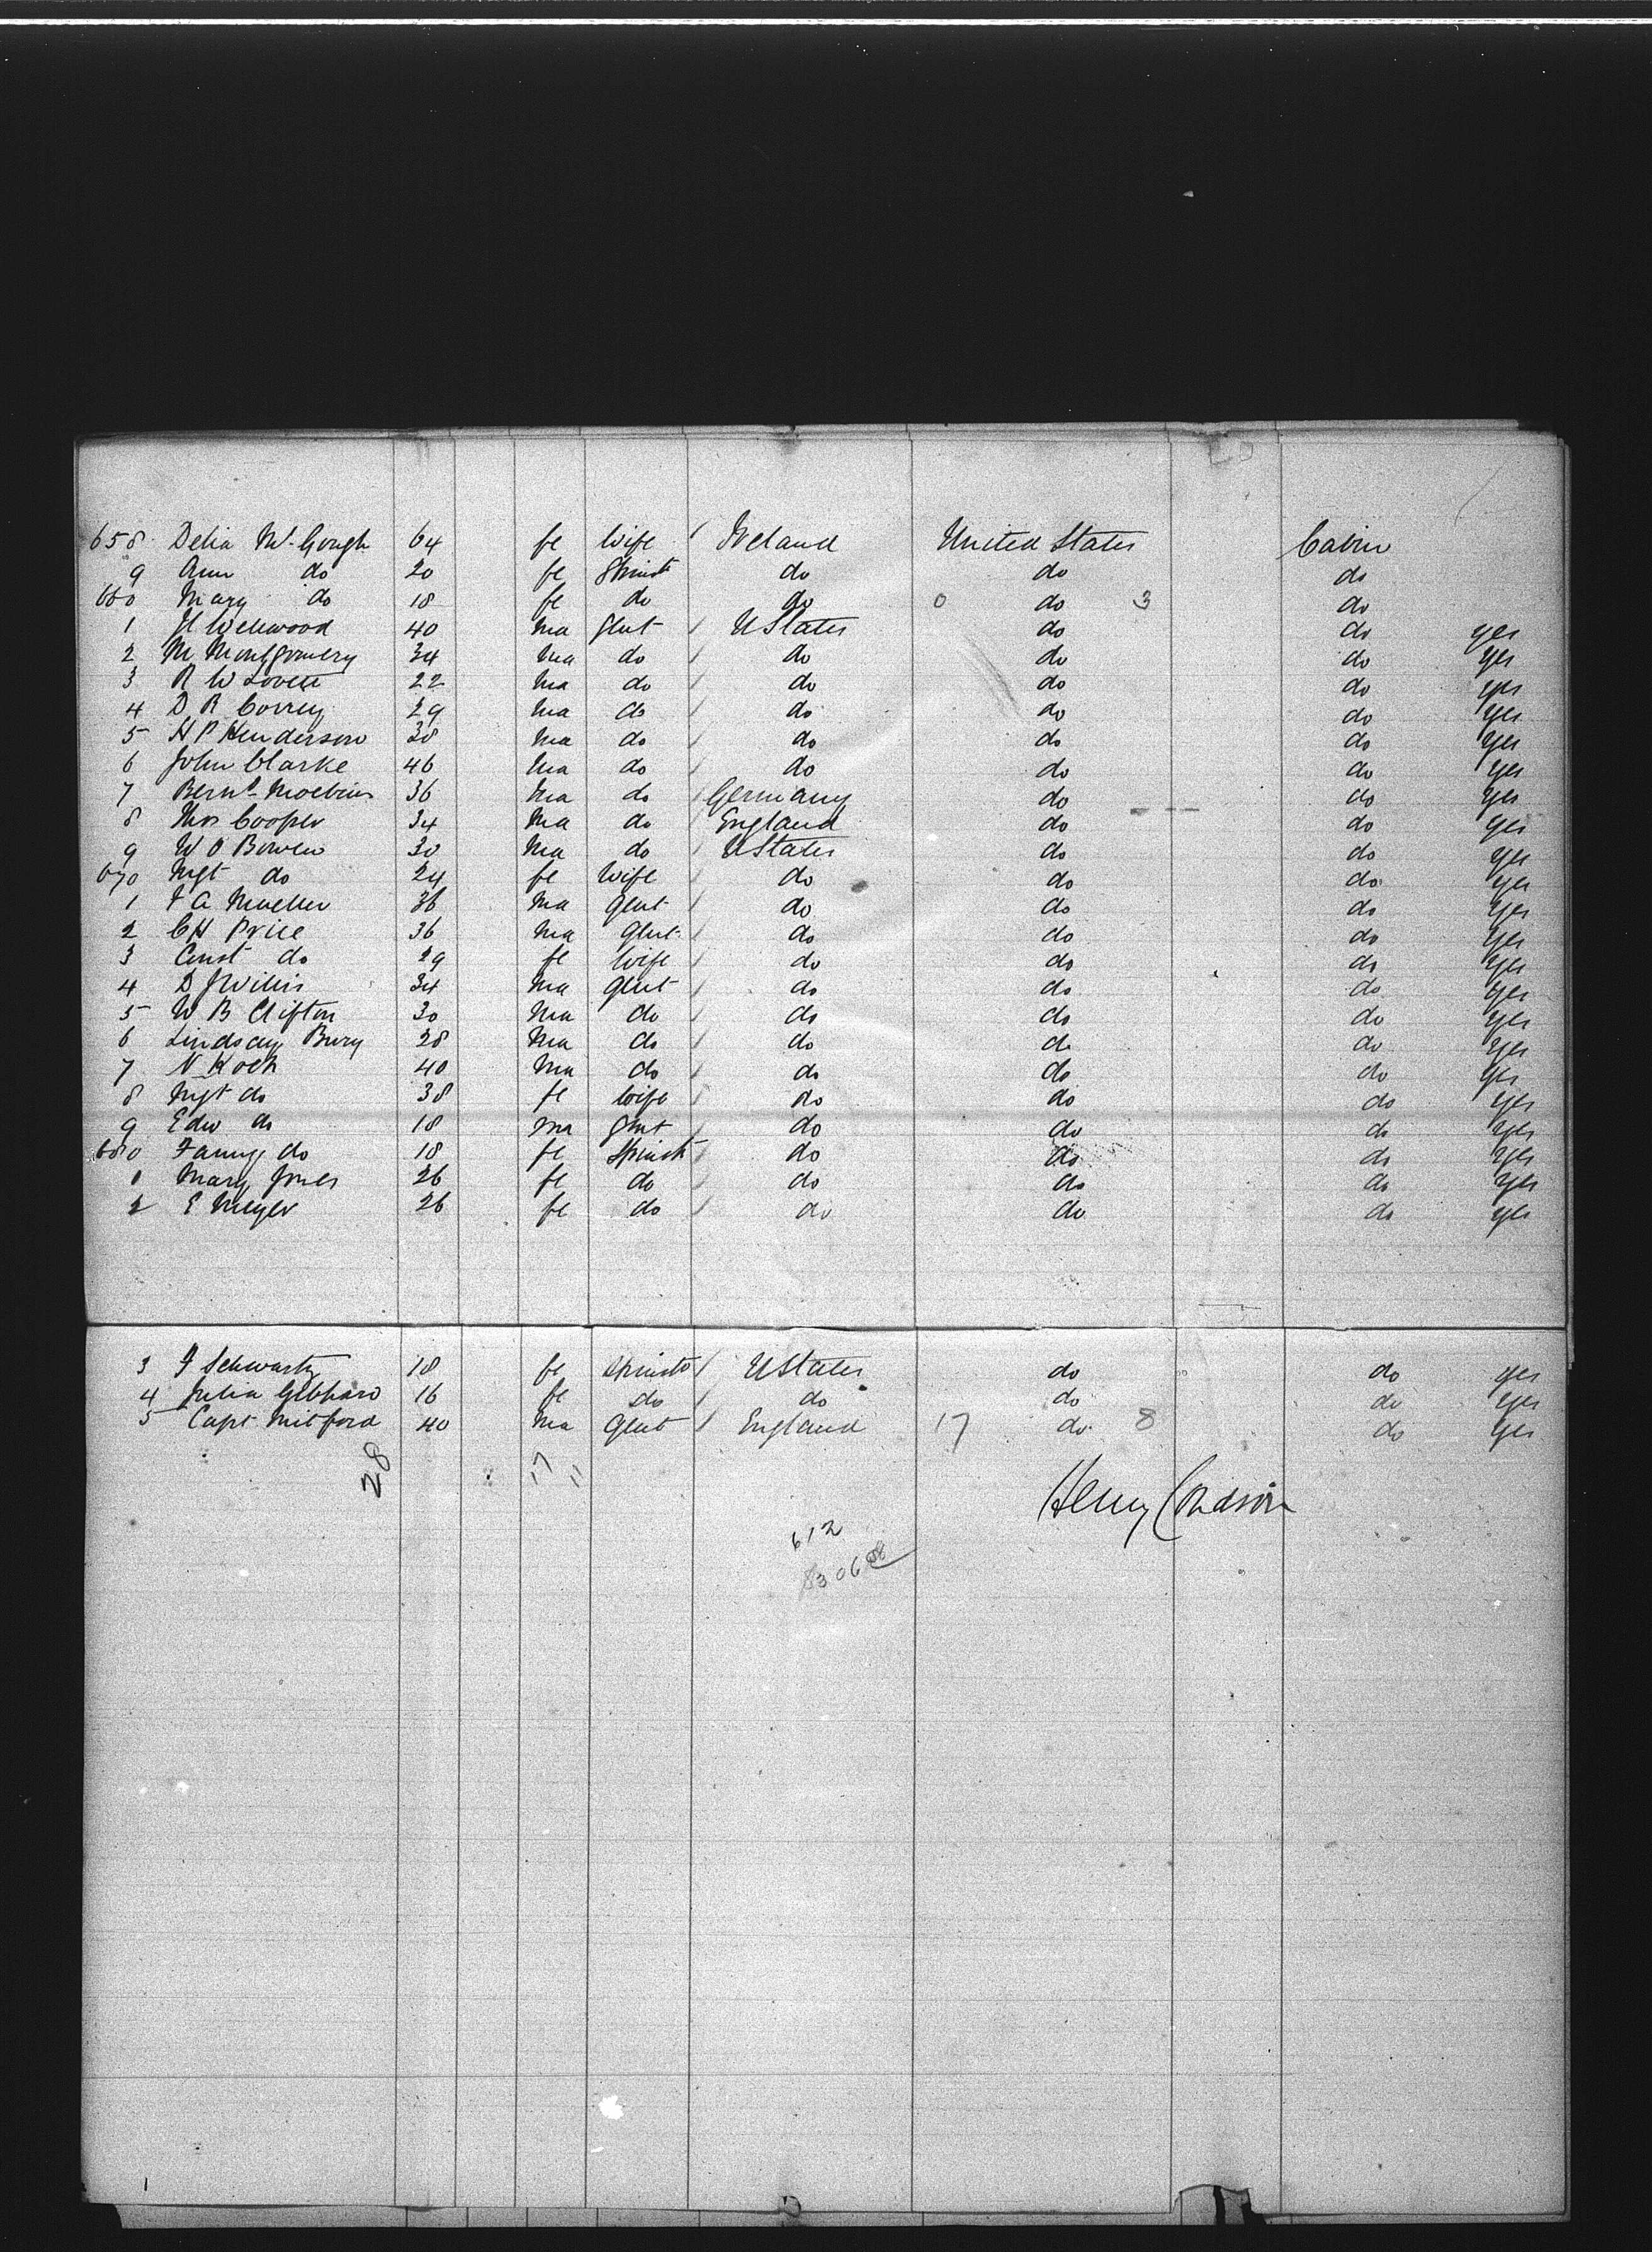 658 Delia McGough 64 fe wife / Ireland United States Cabin
9 Ann do 20 fe Spinst do do do
660 Mary do 18 fe do do 0 do 3 do
1 Wellwood 40 ma Glut / U States do do yes
2 M Montgomery 34 ma do / do do do yes
3 R W Lovett 22 ma do / do do do yes
4 D R Correy 29 ma do / do do do yes
5 H P Henderson 38 ma do / do do do yes
6 John Clarke 46 ma do / do do do yes
7 Bernd Moebius 36 ma do / Germany do do yes
8 Thos Cooper 34 ma do / England do do yes
9 W O Bowen 30 ma do / U States do do yes
670 Mgt do 24 fe Wife / do do do yes
1 F A Mueller 36 ma Glut / do do do yes
2 C H Price 36 ma Glut / do do do yes
3 Const do 29 fe wife / do do do yes
4 D J Willis 34 ma Glut / do do do yes
5 W B Clifton 30 ma do / do do do yes
6 Lindsay Bury 28 ma do / do do do yes
7 N Koch 40 ma do / do do do yes
8 Mgt do 38 fe wife / do do do yes
9 Edw do 18 ma Glut / do do do yes
680 Fanny do 18 fe Spinst / do do do yes
1 Mary Jones 26 fe do / do do do yes
2 E Meyer 26 fe do / do do do yes
3 F Schwartz 18 fe Spinst / U States do do yes
4 Julia Gebhard 16 fe do / do do do yes
5 Capt Mitford 40 ma Glut / England 17 do 8 do yes
28 17 11
Henry
612